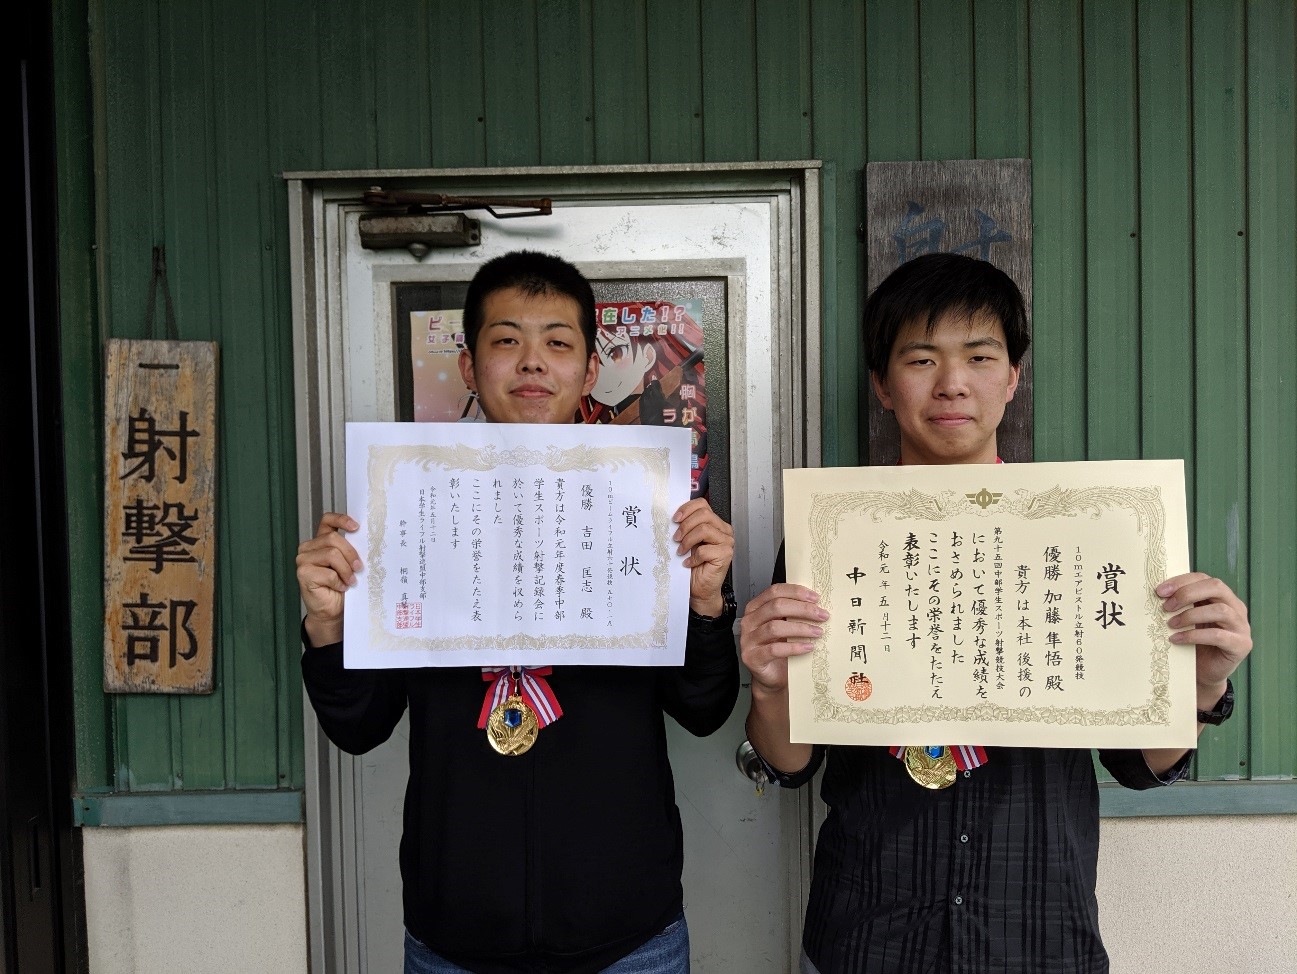 一
射撃部
射
在した!?
賞状
10mビームライフル立射六十発競技 五七〇.八
優勝 吉田 匡志 殿
貴方は令和元年度春季中部
学生スポーツ射撃記録会に
於いて優秀な成績を収めら
れました
ここにその栄誉をたたえ表
彰いたします
令和元年五月十二日
日本学生ライフル射撃連盟中部支部
幹事長
賞状
10mエアピストル立射60発競技
優勝 加藤 隼悟 殿
貴方は本社後援の
第九十五回中部学生スポーツ射撃競技大会
において優秀な成績を
おさめられました
ここにその栄誉をたたえ
表彰いたします
令和元年五月十二日
中日新聞社